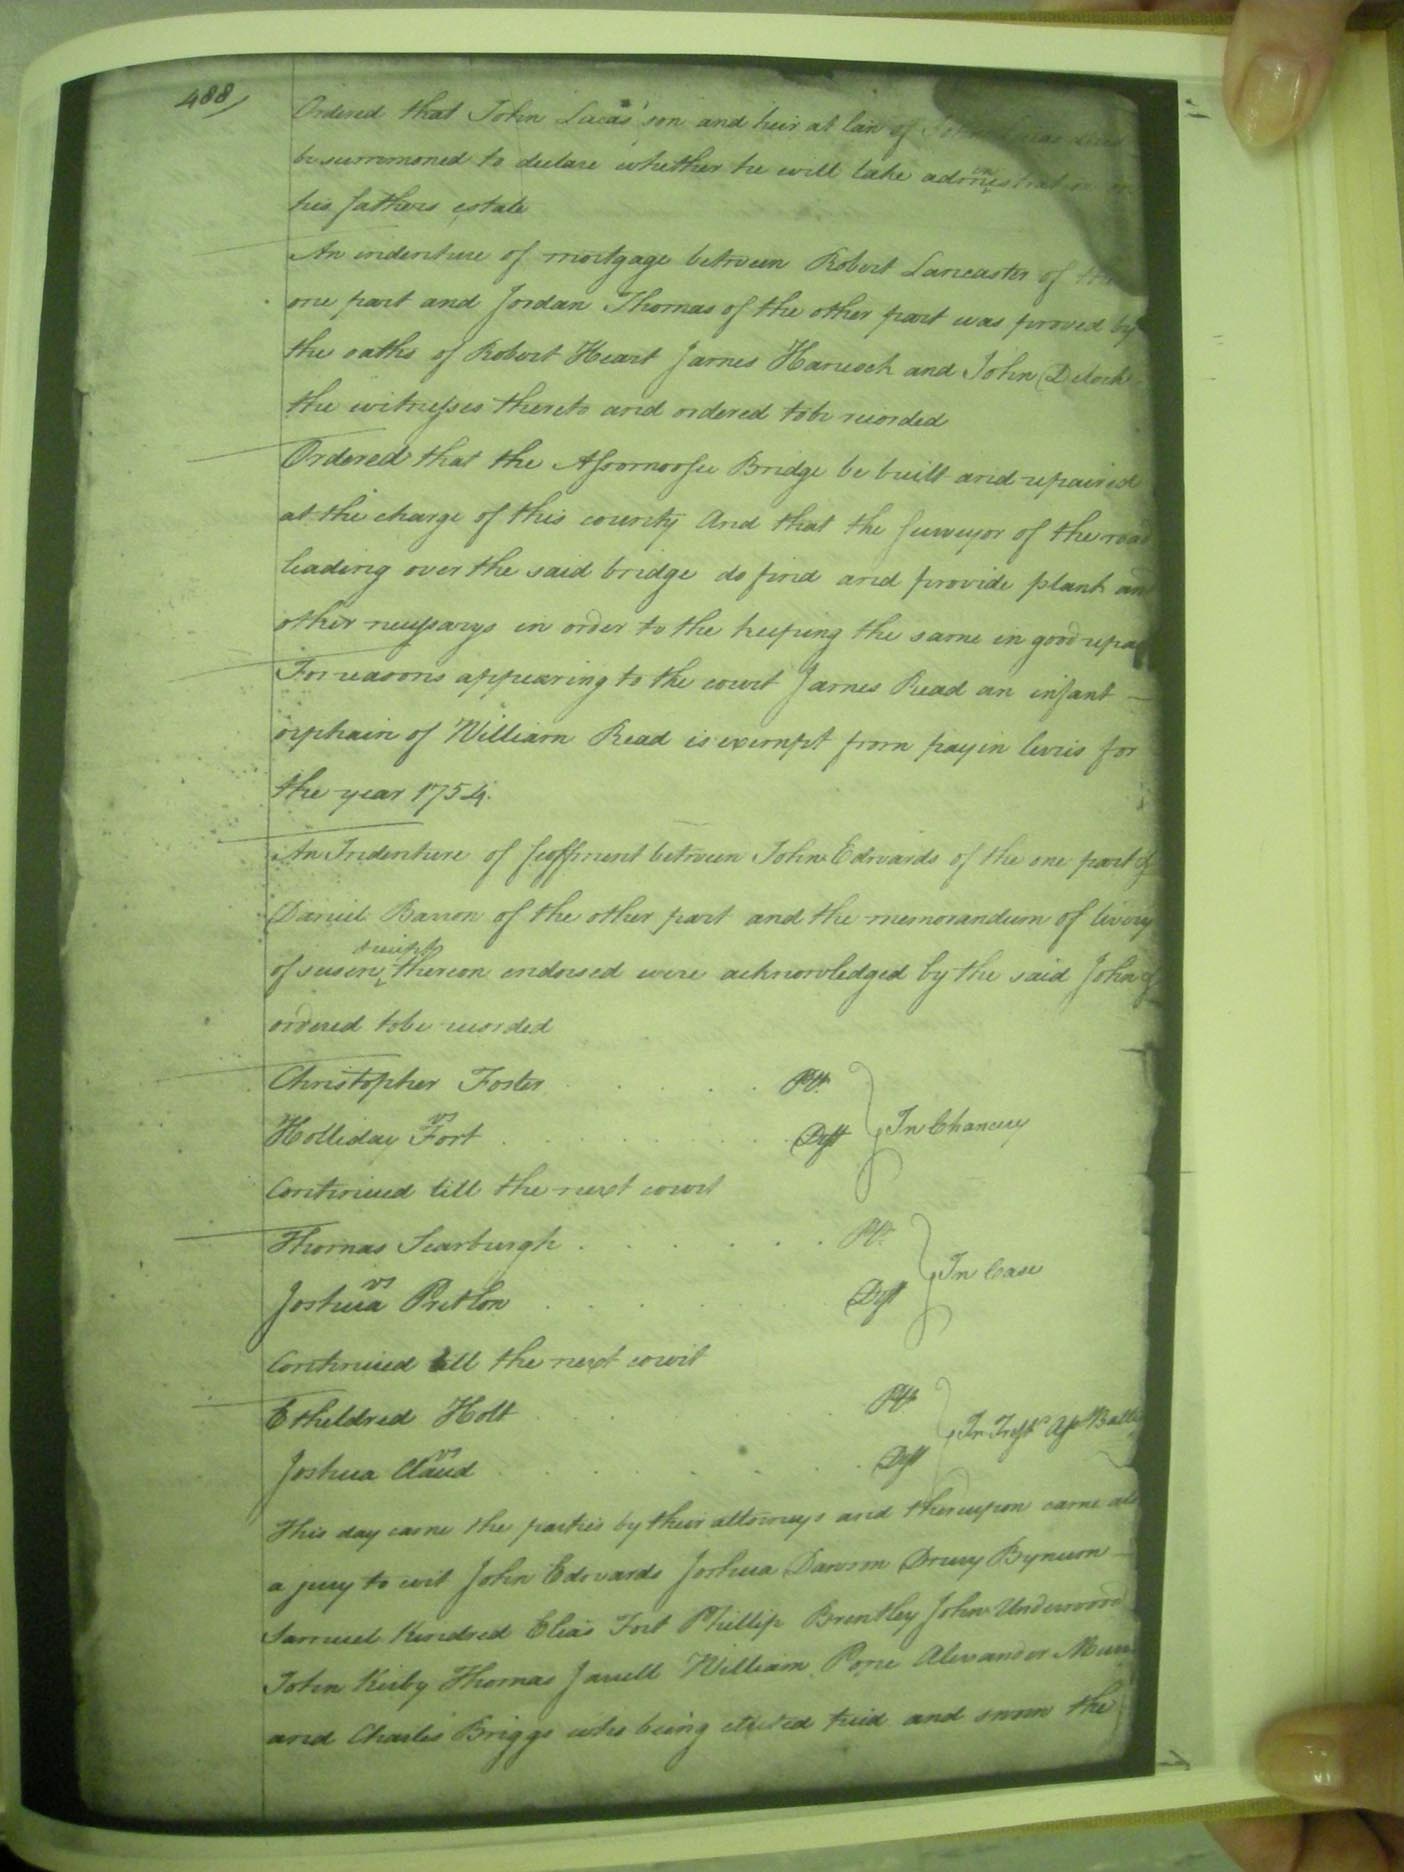 488/
Ordered that John Lucas son and heir at law of John Lucas
be summoned to declare whether he will take administration
his fathers estate
An indenture of mortgage between Robert Lancaster of the
one part and Jordan Thomas of the other part was proved by
the oaths of Robert Heart James Hancock and John Deloch
the witnesses thereto and ordered tobe recorded
Ordered that the Assamoosee Bridge be built and repaired
at the charge of this county And that the surveyor of the road
leading over the said bridge do find and provide plank and
other necessarys in order to the keeping the same in good repair
For reasons appearing to the court James Read an infant
orphain of William Read is exempt from payin levies for
the year 1754.
An Indenture of feoffment between John Edwards of the one part &
Daniel Barron of the other part and the memorandum of livery
receipt
of seisen thereon endorsed were acknowledged by the said John &
ordered tobe recorded
Christopher Foster . . . . . . Plt.
vs In Chancery
Holliday Fort . . . . . . . Deft
Continued till the next court
Thomas Scarburgh . . . . . . Plt.
vs In Case
Joshua Pretlon . . . . . . Deft
Continued till the next court
Etheldred Holt . . . . . . Plt.
vs In Tresps. Ass. Batte
Joshua Claud . . . . . . . Deft
This day came the parties by their attorneys and thereupon came also
a jury to wit John Edwards Joshua Dawson Drury Bynum
Samuel Kindred Elias Fort Phillip Brantley John Underwood
John Kirby Thomas Jarrell William Pope Alexander
and Charles Briggs who being elected tried and sworn the